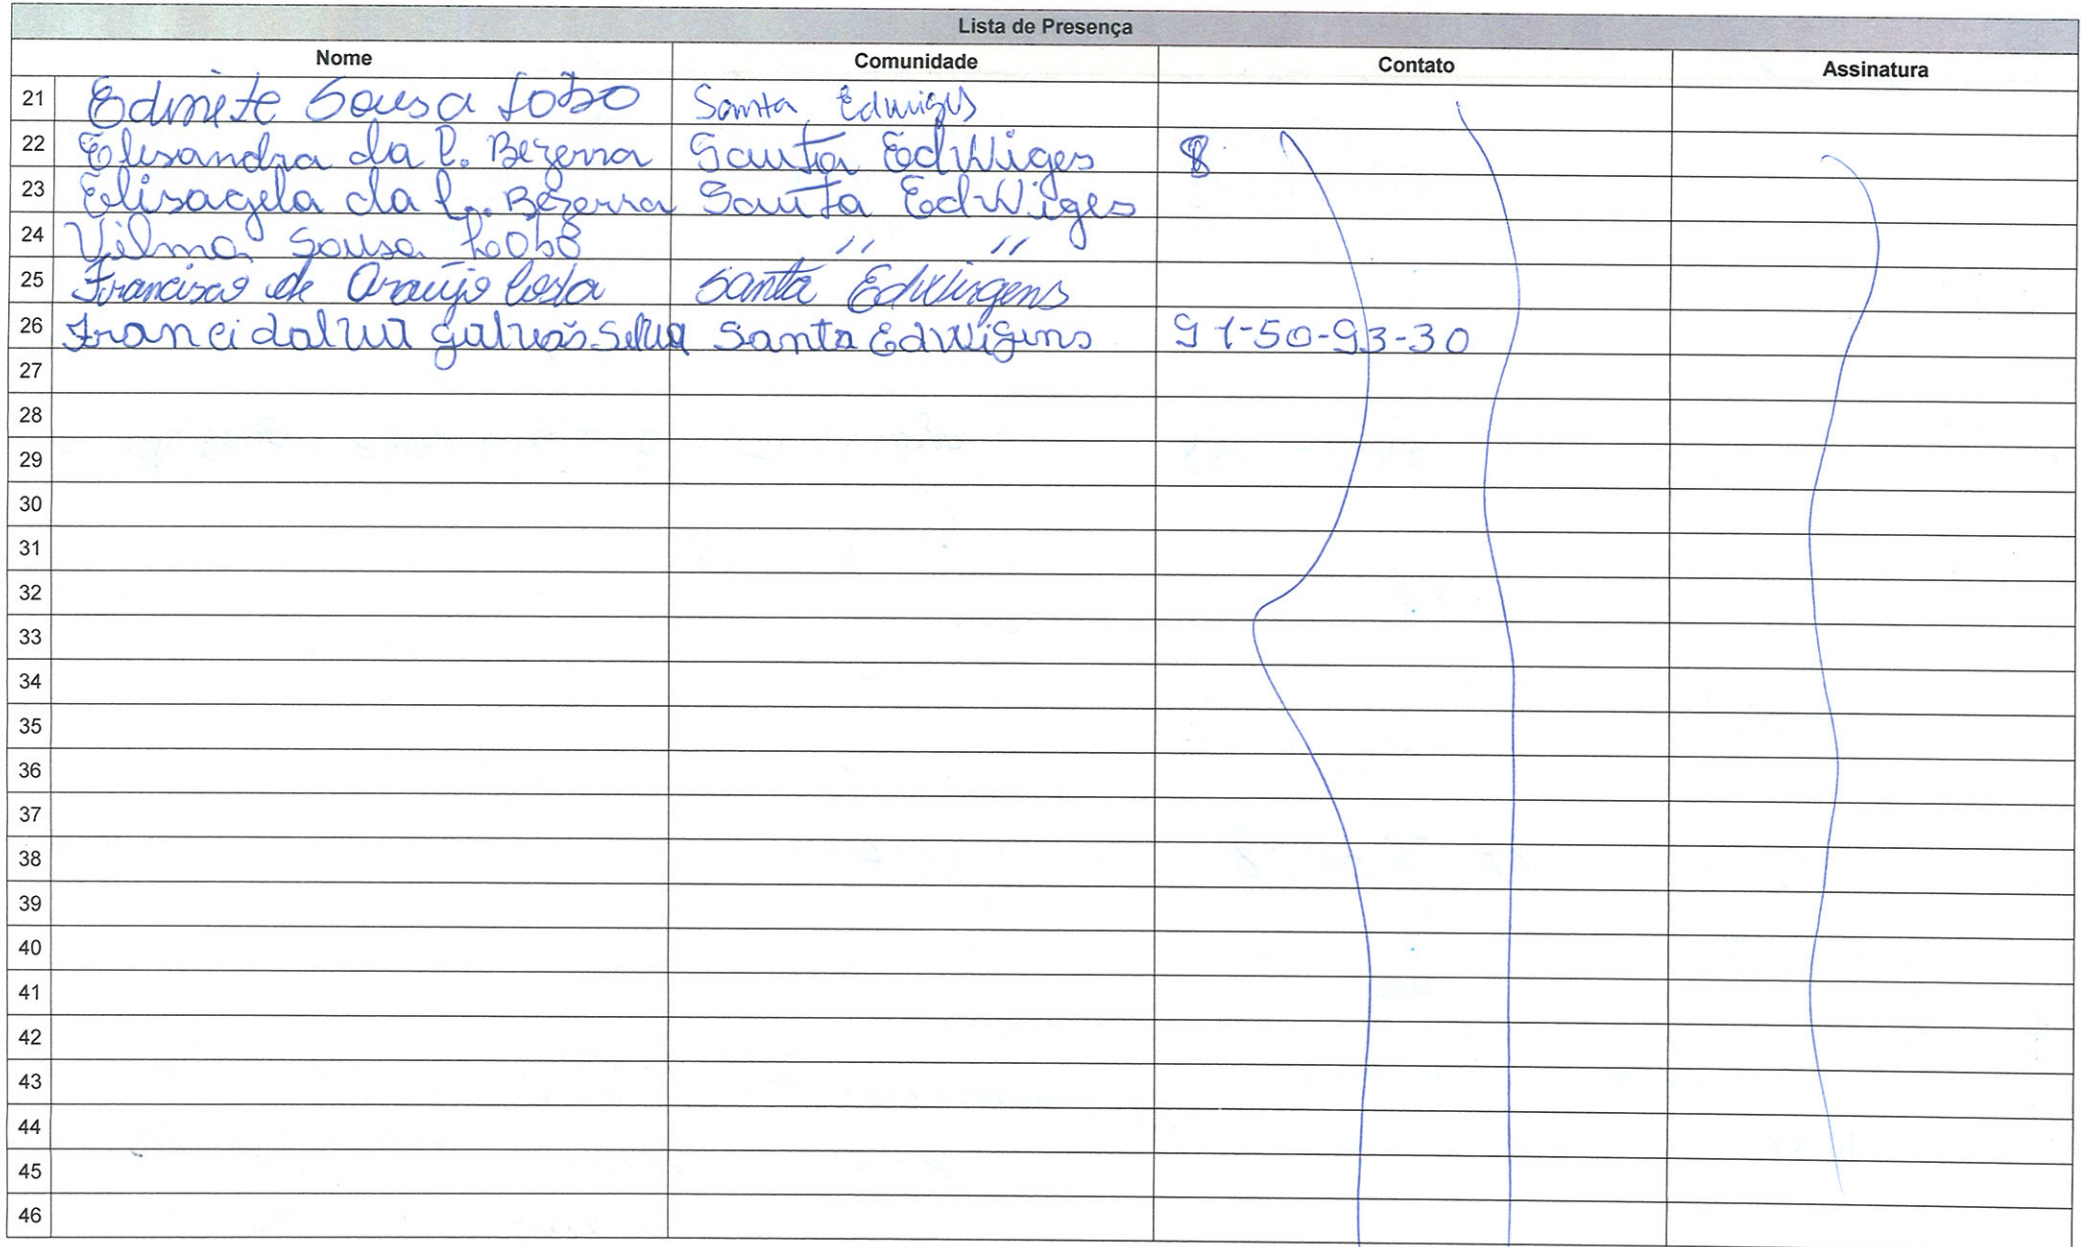 Lista de Presença
Nome Comunidade Contato Assinatura
21 Edinete Sousa Lobo Santa Edwiges
22 Elisandra da C. Bezerra Santa EdWiges 8
23 Elisagela da C. Bezerra Santa EdWiges
24 Vilma Sousa Lobo " "
25 Francisco de Araújo Costa Santa Edwirgens
26 Galvão Silva Santa EdWigens 91-50-93-30
27
28
29
30
31
32
33
34
35
36
37
38
39
40
41
42
43
44
45
46